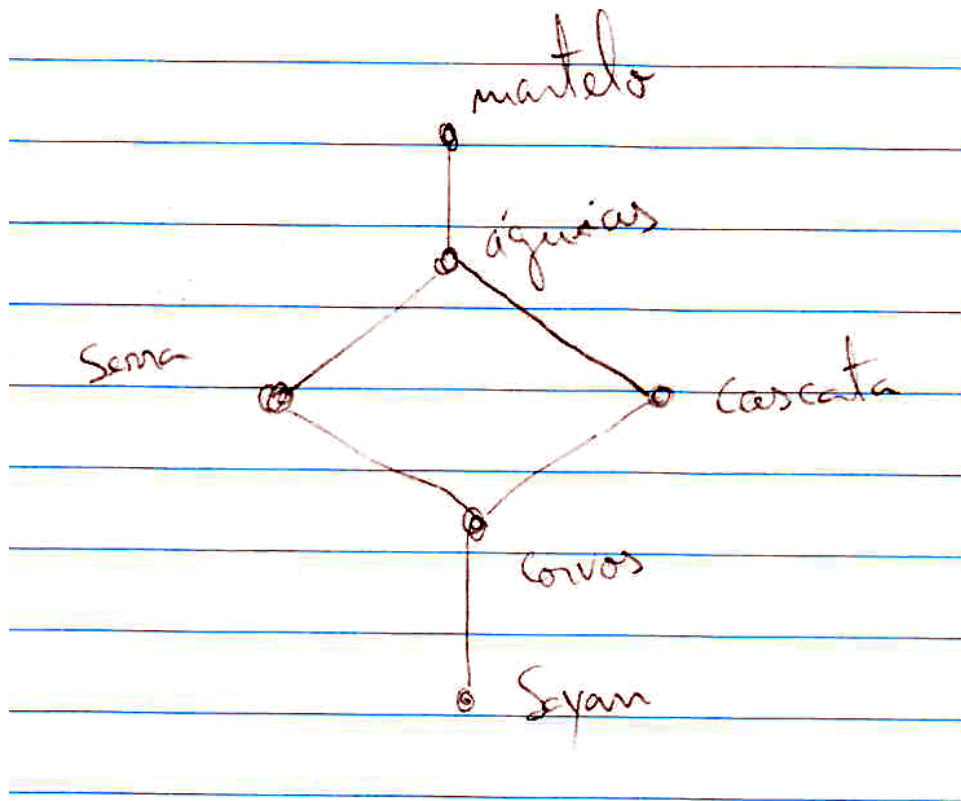 martelo
águias
Serra
cascata
corvos
Sayan